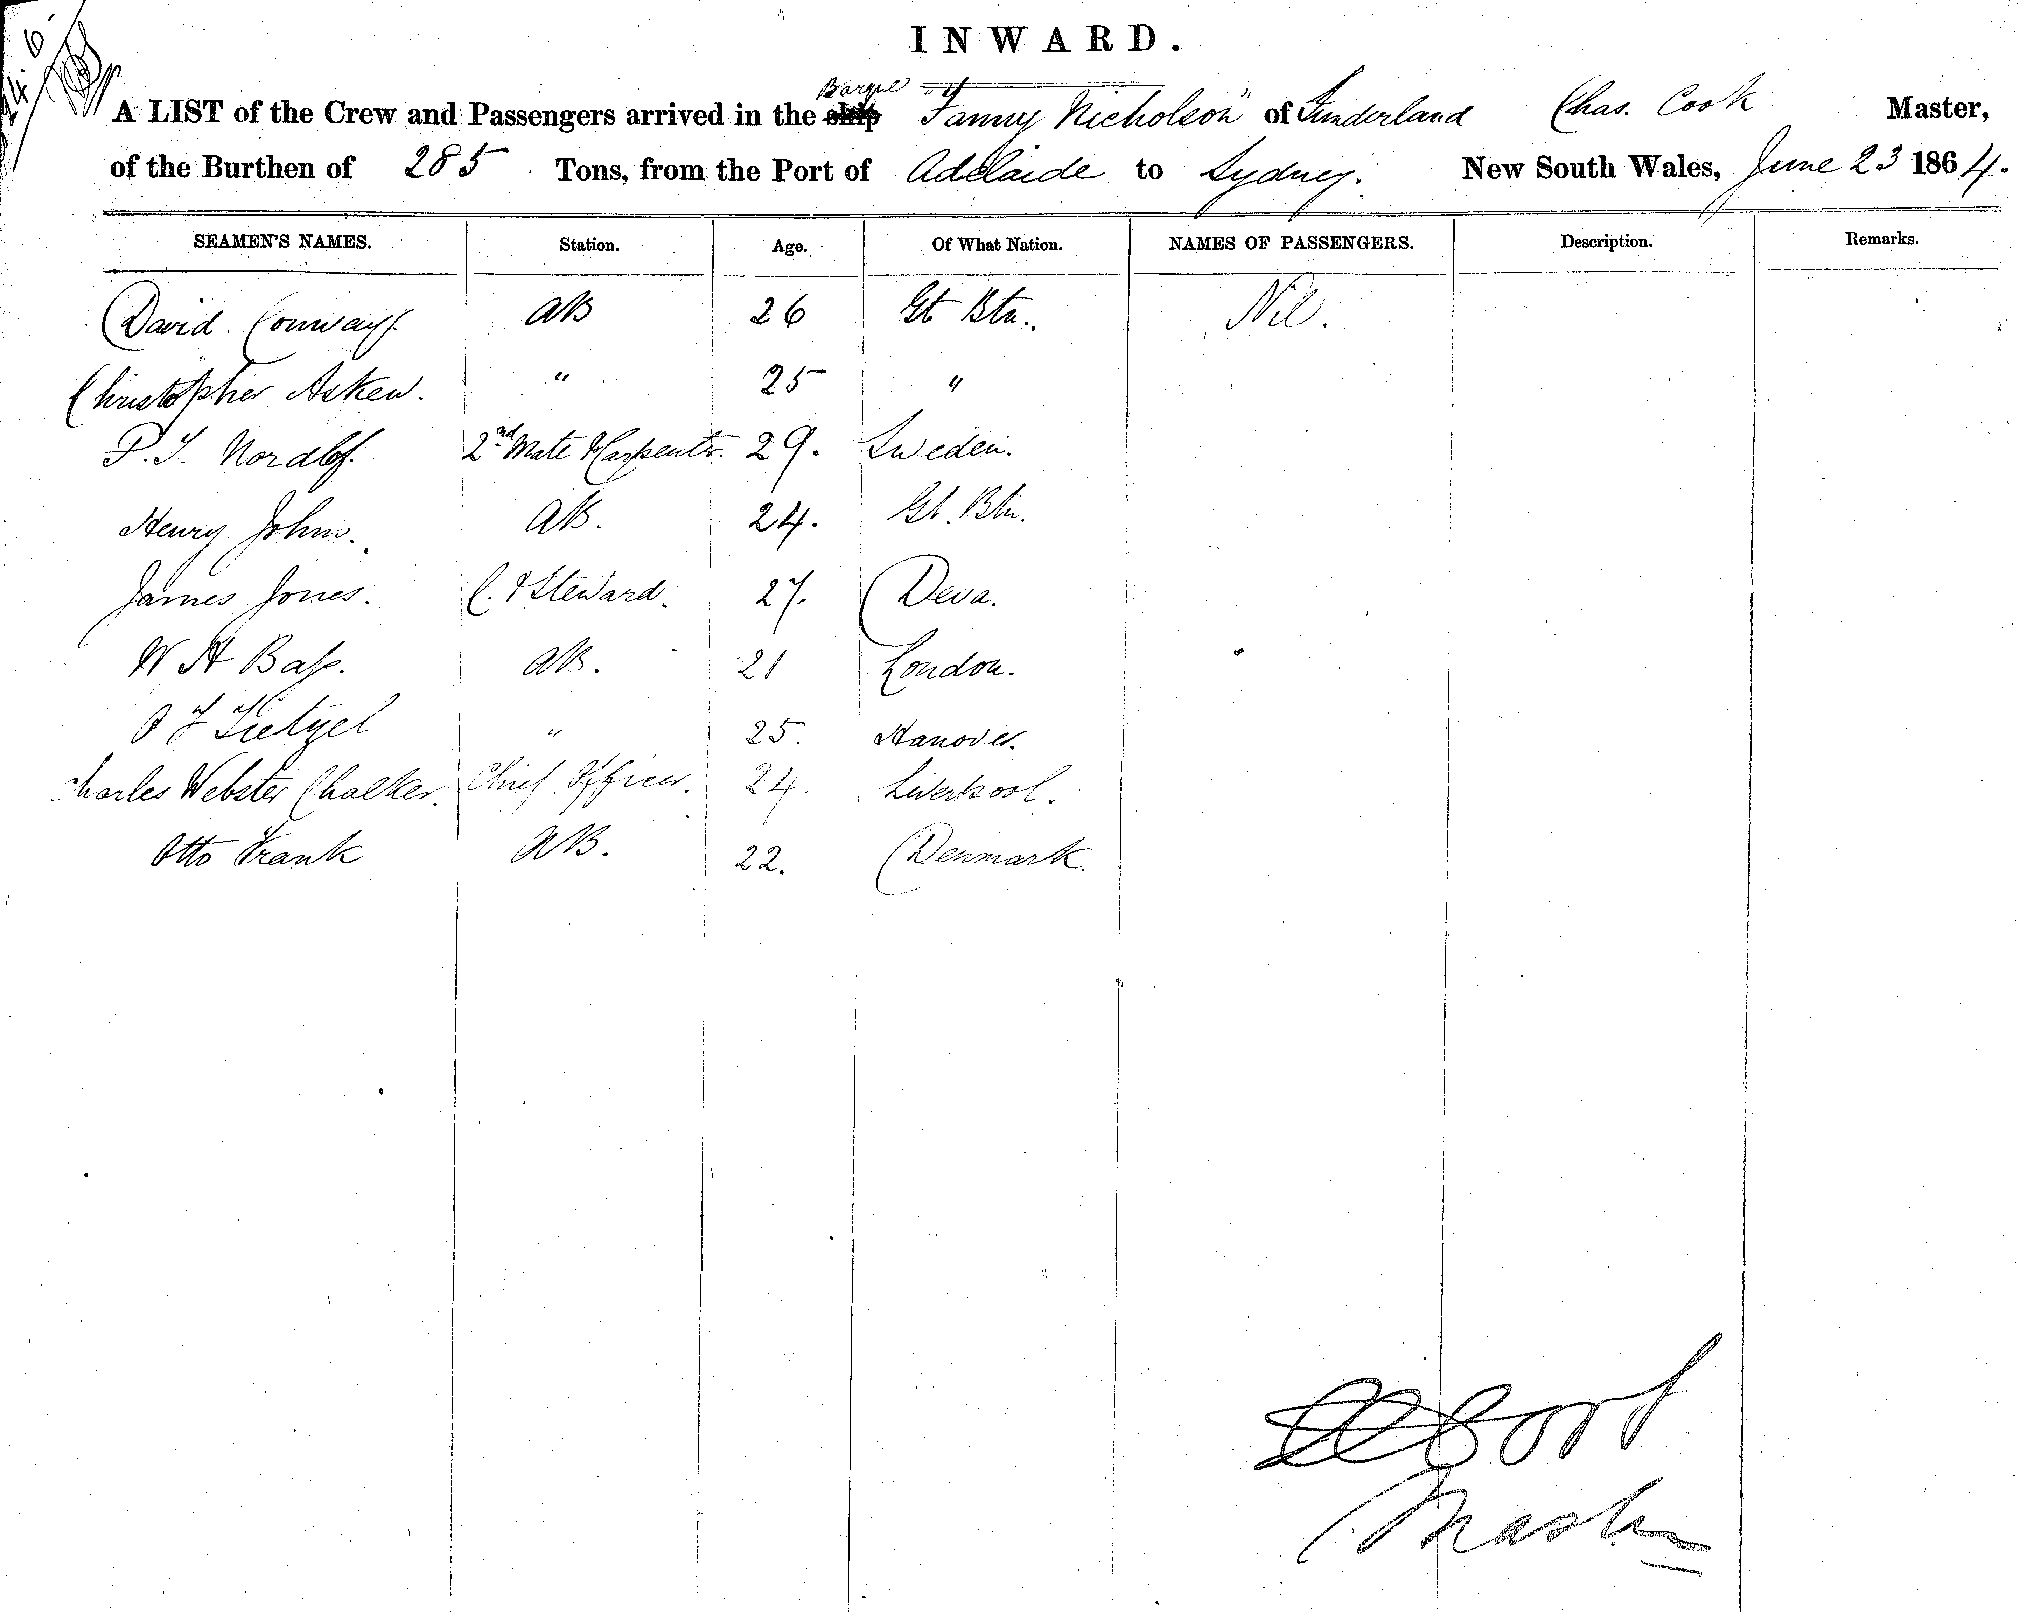 24.6.
INWARD.
A LIST of the Crew and Passengers arrived in the ship Barque "Fanny Nicholson" of Sunderland Chas. Cook Master,
of the Burthen of 285 Tons, from the Port of Adelaide to Sydney. New South Wales, June 23 1864.
SEAMEN'S NAMES. Station. Age. Of What Nation. NAMES OF PASSENGERS. Description. Remarks.
David Conway. AB 26 Gt Btn. Nil.
Christopher Askew. " 25 "
P. I. Nordlof. 2nd Mate & Carpentr. 29. Sweden.
Henry Johns. AB. 24. Gt. Btn.
James Jones. C. & Steward. 27. Deva.
W H Bass. AB. 21 London.
O F Tietzel " 25. Hanover.
Charles Webster Chalker. Chief Officer. 24. Liverpool.
Otto Frank AB. 22. Denmark.
Cook
Master